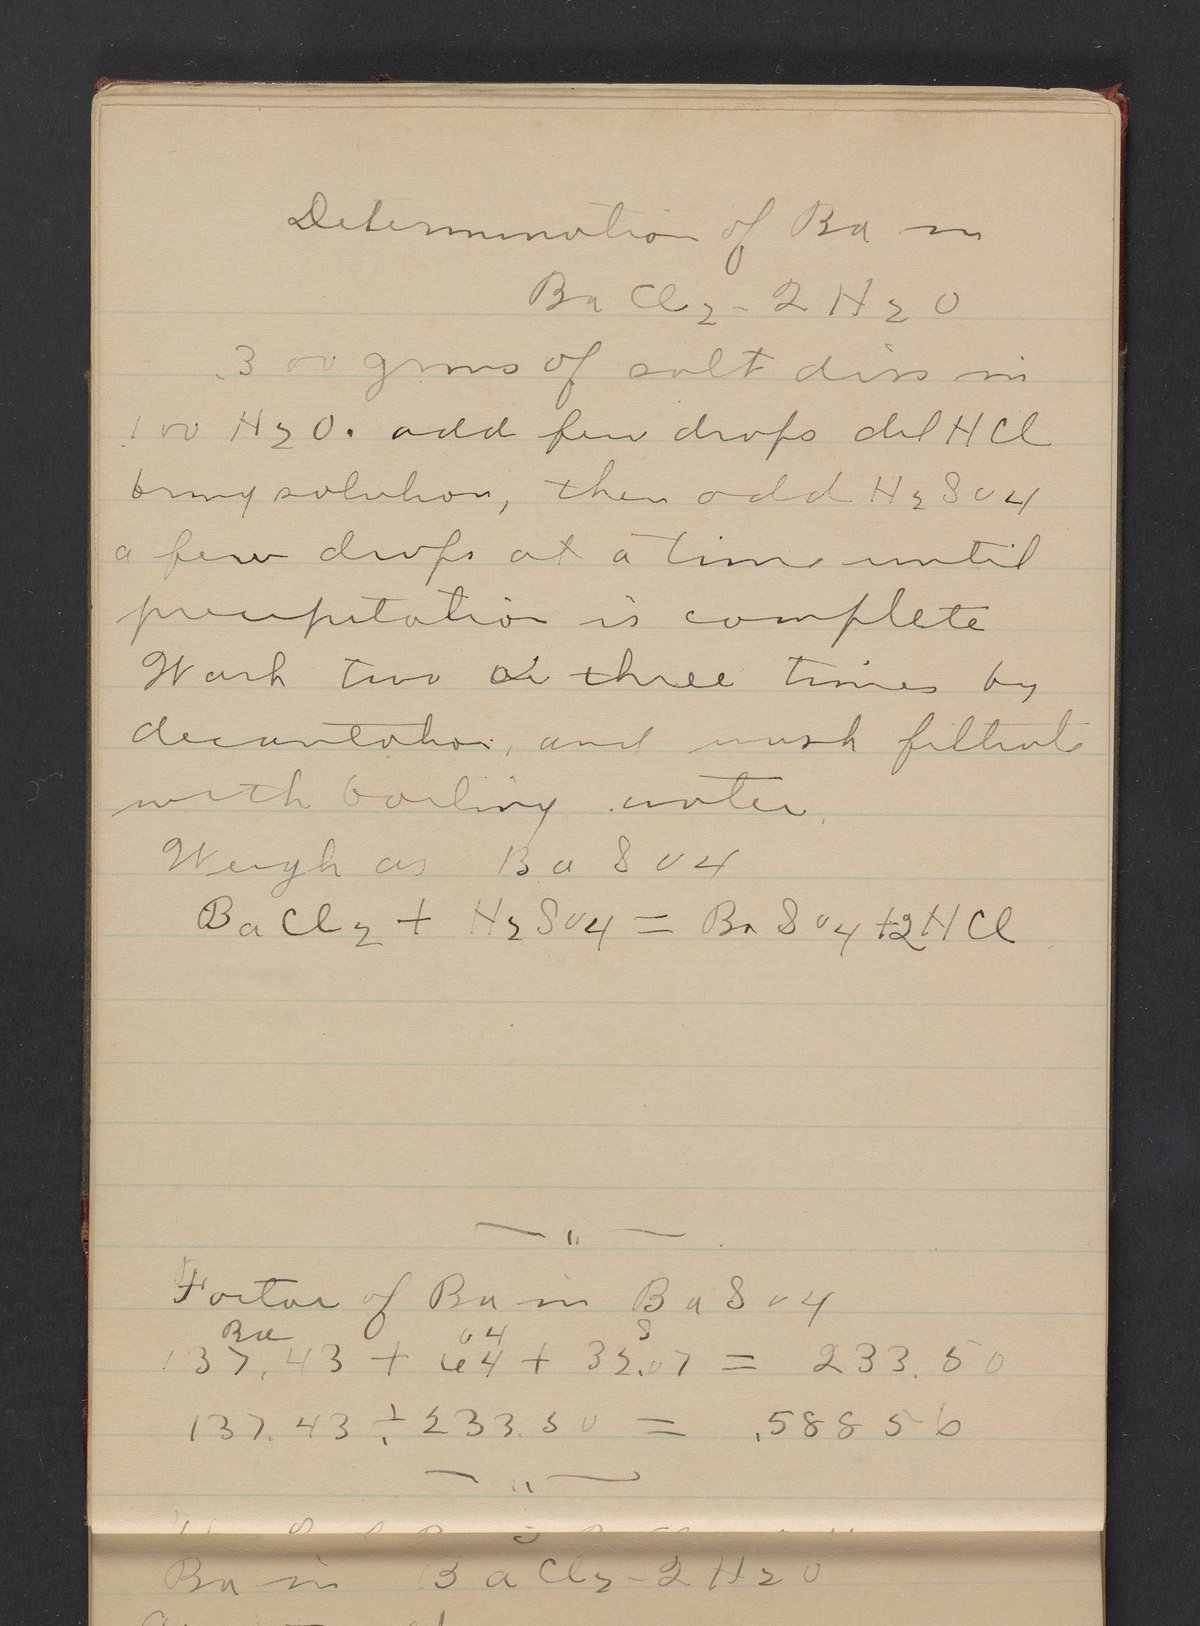 Determination of Ba in
BaCl2-2H2O
.300 grms of salt diss in
100 H2O. add few drops dil HCl
bring solution, then add H2SO4
a few drops at a time until
precipitation is complete
Wash two or three times by
decantation, and wash filtrate
with boiling water.
Weigh as BaSO4
BaCl2 + H2SO4 = BaSO4 + 2HCl
— " —
Factor of Ba in BaSO4
Ba O4 S
137.43 + 64 + 32.07 = 233.50
137.43 ÷ 233.50 = .58856
— " —
Ba in BaCl2-2H2O